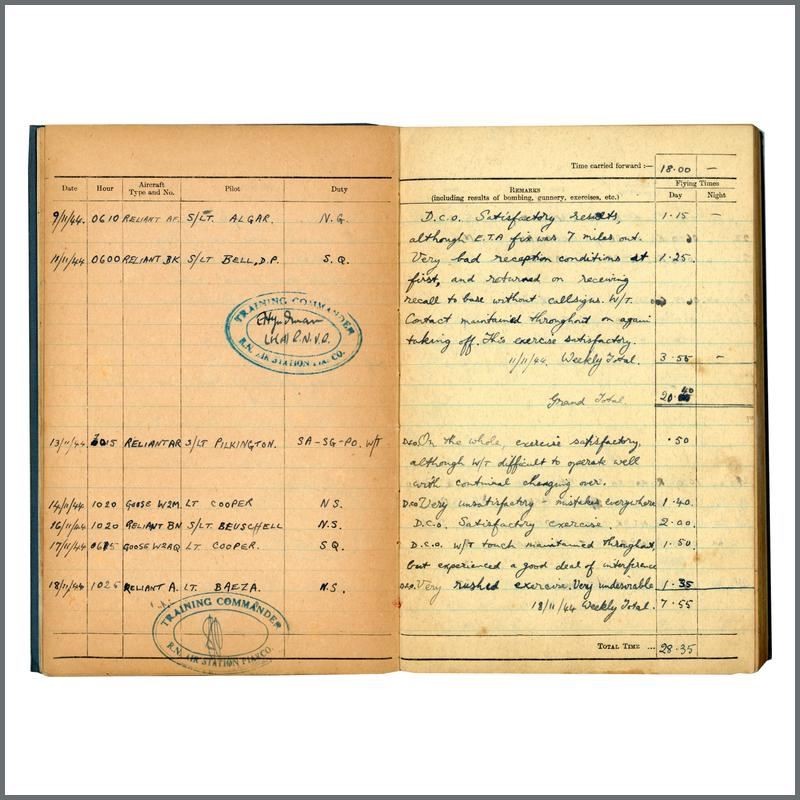 Date Hour Aircraft Type and No. Pilot Duty
9/11/44. 0610 RELIANT AF. S/LT. ALGAR. N.G.
11/11/44 0600 RELIANT.BK S/LT BELL, D.P. S.Q.
TRAINING COMMANDER
R.N.V.R.
R.N. AIR STATION PIARCO.
13/11/44 RELIANT AR S/LT PILKINGTON. SA-SG-PO. W/T
14/11/44 1020 GOOSE W2M. LT COOPER N.S.
16/11/44 1020 RELIANT BN S/LT. BEUSCHELL N.S.
17/11/44 GOOSE W2AQ LT COOPER. S.Q.
18/11/44 1025 RELIANT A. LT. BAEZA. N.S.
TRAINING COMMANDER
R.N. AIR STATION PIARCO.
Time carried forward :— 18.00 —
REMARKS
(including results of bombing, gunnery, exercises, etc.)
Flying Times
Day Night
D.C.O. Satisfactory results, 1.15 —
although E.T.A fix was 7 miles out.
Very bad reception conditions at 1.25.
first, and returned on receiving
recall to base without callsigns. W/T.
Contact maintained throughout on again
taking off. This exercise satisfactory.
11/11/44. Weekly Total. 3.55 —
Grand Total. 20.40
D.C.O. On the whole, exercise satisfactory, .50
although W/T difficult to operate well
with continual changing over.
D.C.O Very unsatisfactory - mistakes everywhere 1.40.
D.C.O. Satisfactory exercise. 2.00.
D.C.O. W/T touch maintained throughout, 1.50.
but experienced a good deal of interference
D.C.O. Very rushed exercise. Very undesirable 1.35
18/11/44 Weekly Total. 7.55
TOTAL TIME ... 28.35